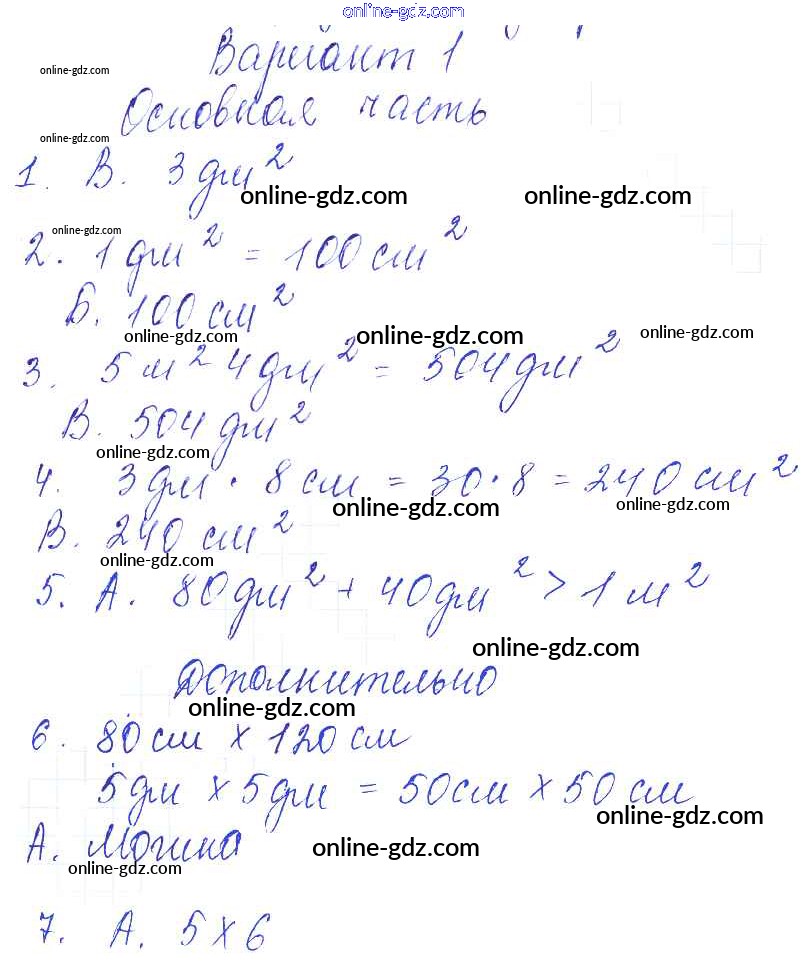 online-gdz.com
Вариант 1
online-gdz.com
Основная часть
online-gdz.com
1. В. 3 дм²
online-gdz.com online-gdz.com
online-gdz.com
2. 1 дм² = 100 см²
Б. 100 см²
online-gdz.com online-gdz.com online-gdz.com
3. 5 м² 4 дм² = 504 дм²
В. 504 дм²
online-gdz.com
4. 3 дм · 8 см = 30 · 8 = 240 см²
online-gdz.com online-gdz.com
В. 240 см²
online-gdz.com
5. А. 80 дм² + 40 дм² > 1 м²
online-gdz.com
Дополнительно
online-gdz.com
6. 80 см х 120 см
5 дм х 5 дм = 50 см х 50 см
online-gdz.com
А. Могла
online-gdz.com online-gdz.com
7. А. 5 х 6